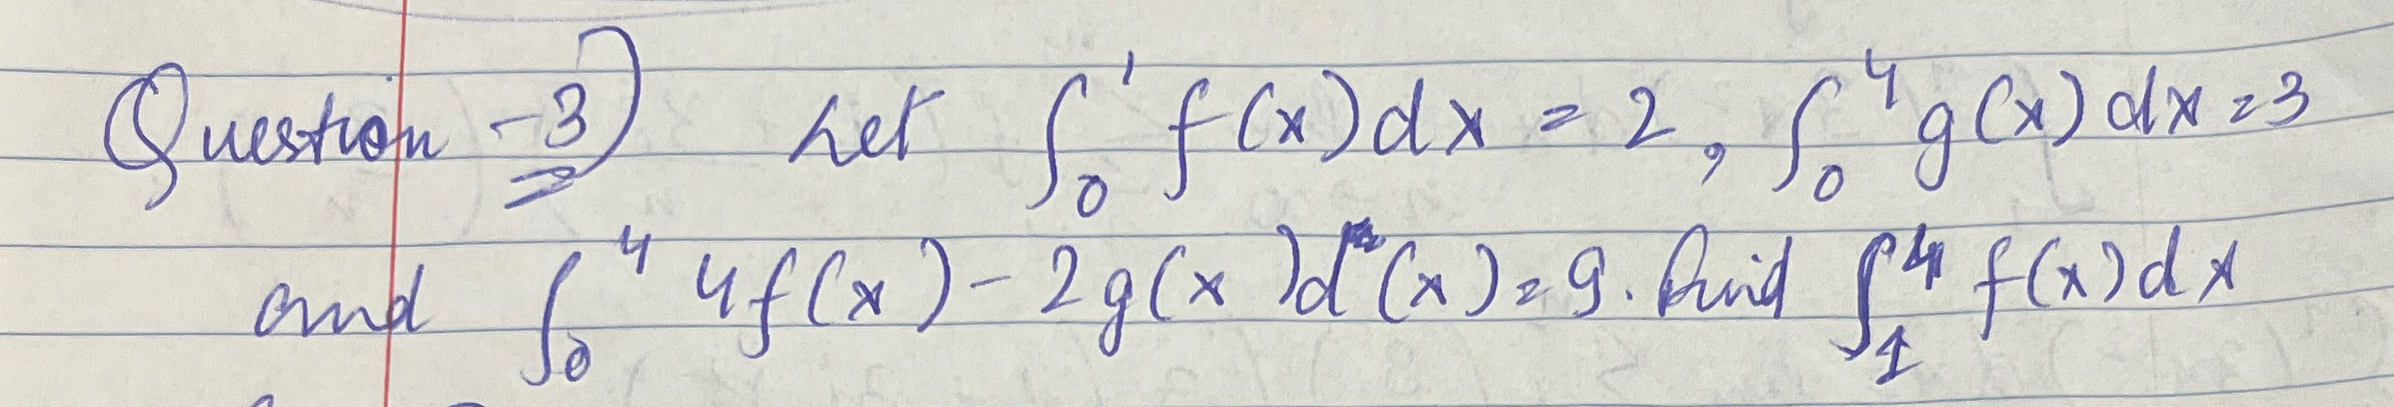 Question -3) Let ∫₀¹ f(x)dx = 2, ∫₀⁴ g(x)dx = 3
and ∫₀⁴ 4f(x) - 2g(x)d(x) = 9. find ∫₁⁴ f(x)dx